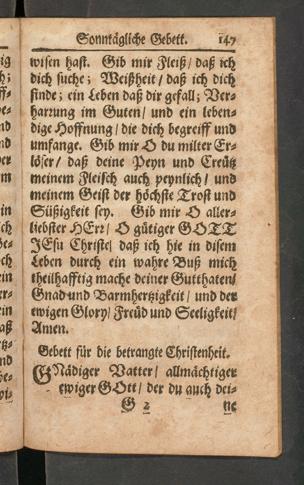 Sonntägliche Gebett. 147
wisen hast. Gib mir Fleiß/ daß ich
dich suche; Weißheit/ daß ich dich
finde; ein Leben daß dir gefall; Ver-
harrung im Guten/ und ein leben-
dige Hoffnung/ die dich begreiff und
umfange. Gib mir O du milter Er-
löser/ daß deine Peyn und Creütz
meinem Fleisch auch peynlich/ und
meinem Geist der höchste Trost und
Süßigkeit sey. Gib mir O aller-
liebster HErr/ O gütiger GOTT
JEsu Christe/ daß ich hie in disem
Leben durch ein wahre Buß mich
theilhafftig mache deiner Gutthaten/
Gnad und Barmhertzigkeit/ und der
ewigen Glory/ Freüd und Seeligkeit/
Amen.
Gebett für die betrangte Christenheit.
GNädiger Vatter/ allmächtiger
ewiger GOtt/ der du auch dei-
G 2 ne